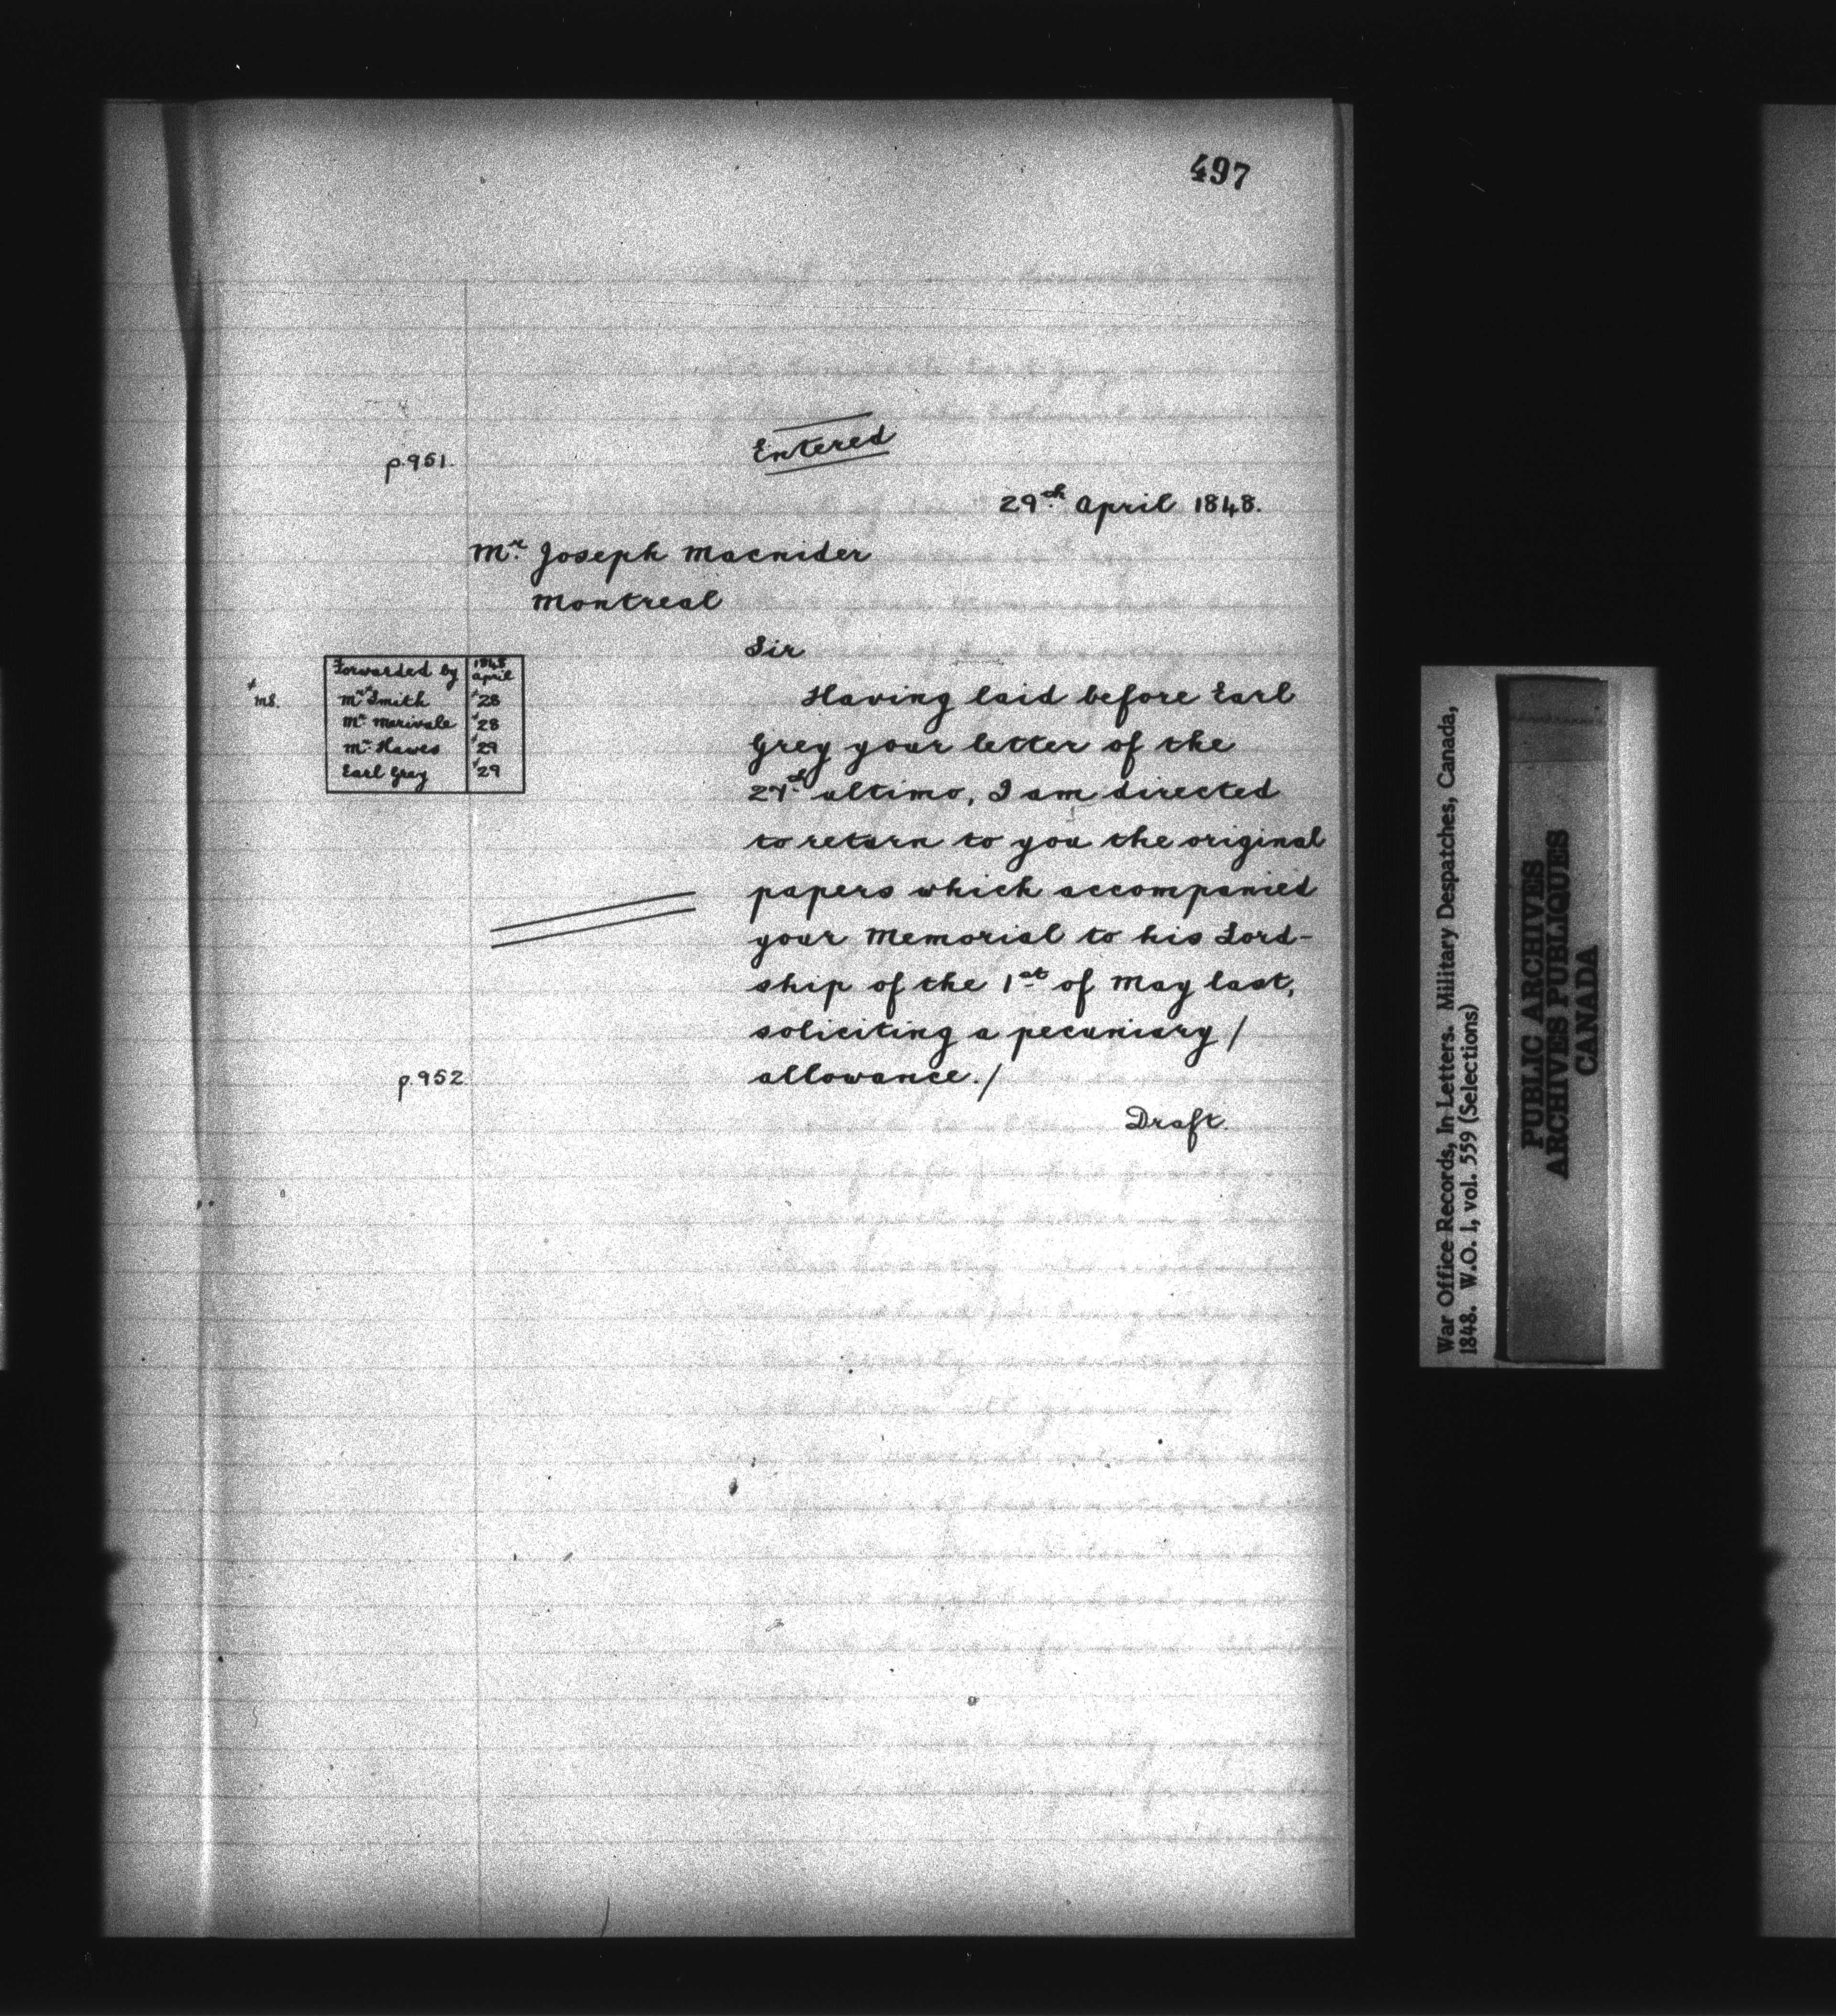 497
Entered
p.951.
29th April 1848.
Mr. Joseph Macnider
Montreal
Sir
Forwarded by 1848 April
Mr Smith 28
Mr Merivale 28
Mr Hawes 29
Earl Grey 29
ms.
Having laid before Earl
Grey your letter of the
27th ultimo, I am directed
to return to you the original
papers which accompanied
your Memorial to his Lord-
ship of the 1st of May last,
soliciting a pecuniary /
p.952
allowance./
Draft.
War Office Records, In Letters. Military Despatches, Canada,
1848. W.O. 1, vol. 559 (Selections)
PUBLIC ARCHIVES
ARCHIVES PUBLIQUES
CANADA